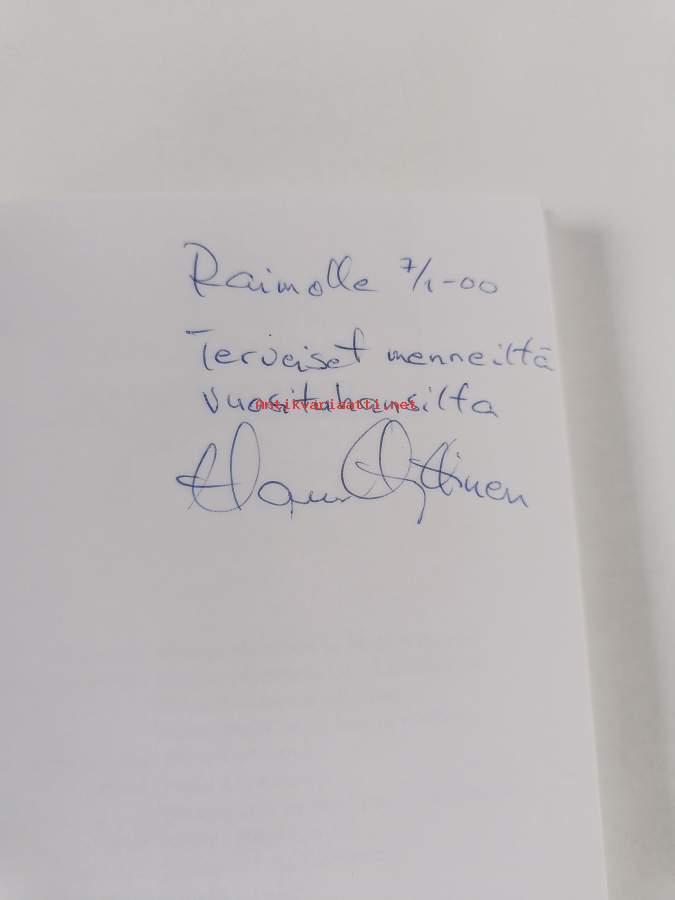 Raimolle 7/1-00
Terveiset menneiltä
vuosituhansilta
Antikvariaatti.net